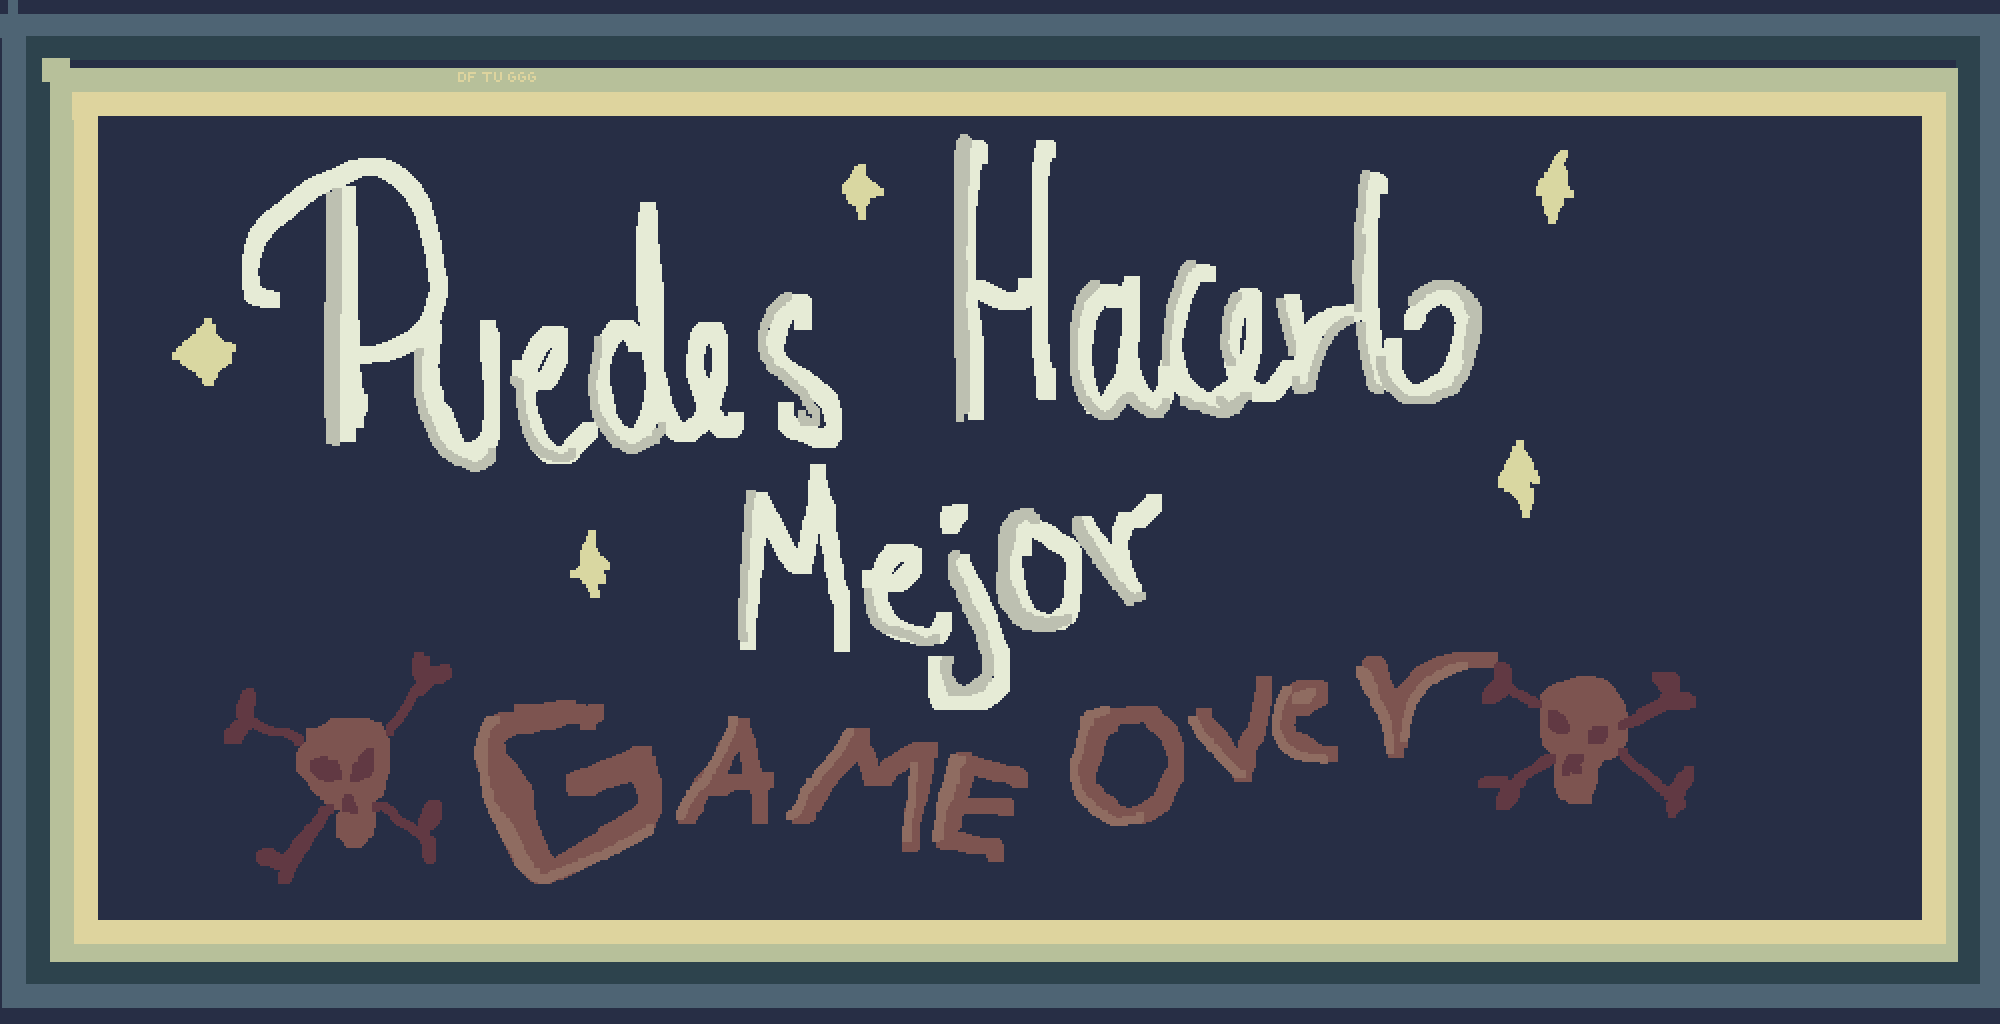 DF TU GGG
Puedes Hacerlo
Mejor
GAME Over